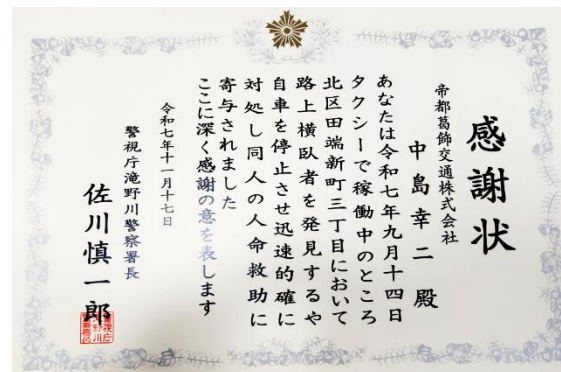 感謝状
帝都葛飾交通株式会社
中島幸二殿
あなたは令和七年九月十四日
タクシーで稼働中のところ
北区田端新町三丁目において
路上横臥者を発見するや
自車を停止させ迅速的確に
対処し同人の人命救助に
寄与されました
ここに深く感謝の意を表します
令和七年十一月十七日
警視庁滝野川警察署長
佐川慎一郎